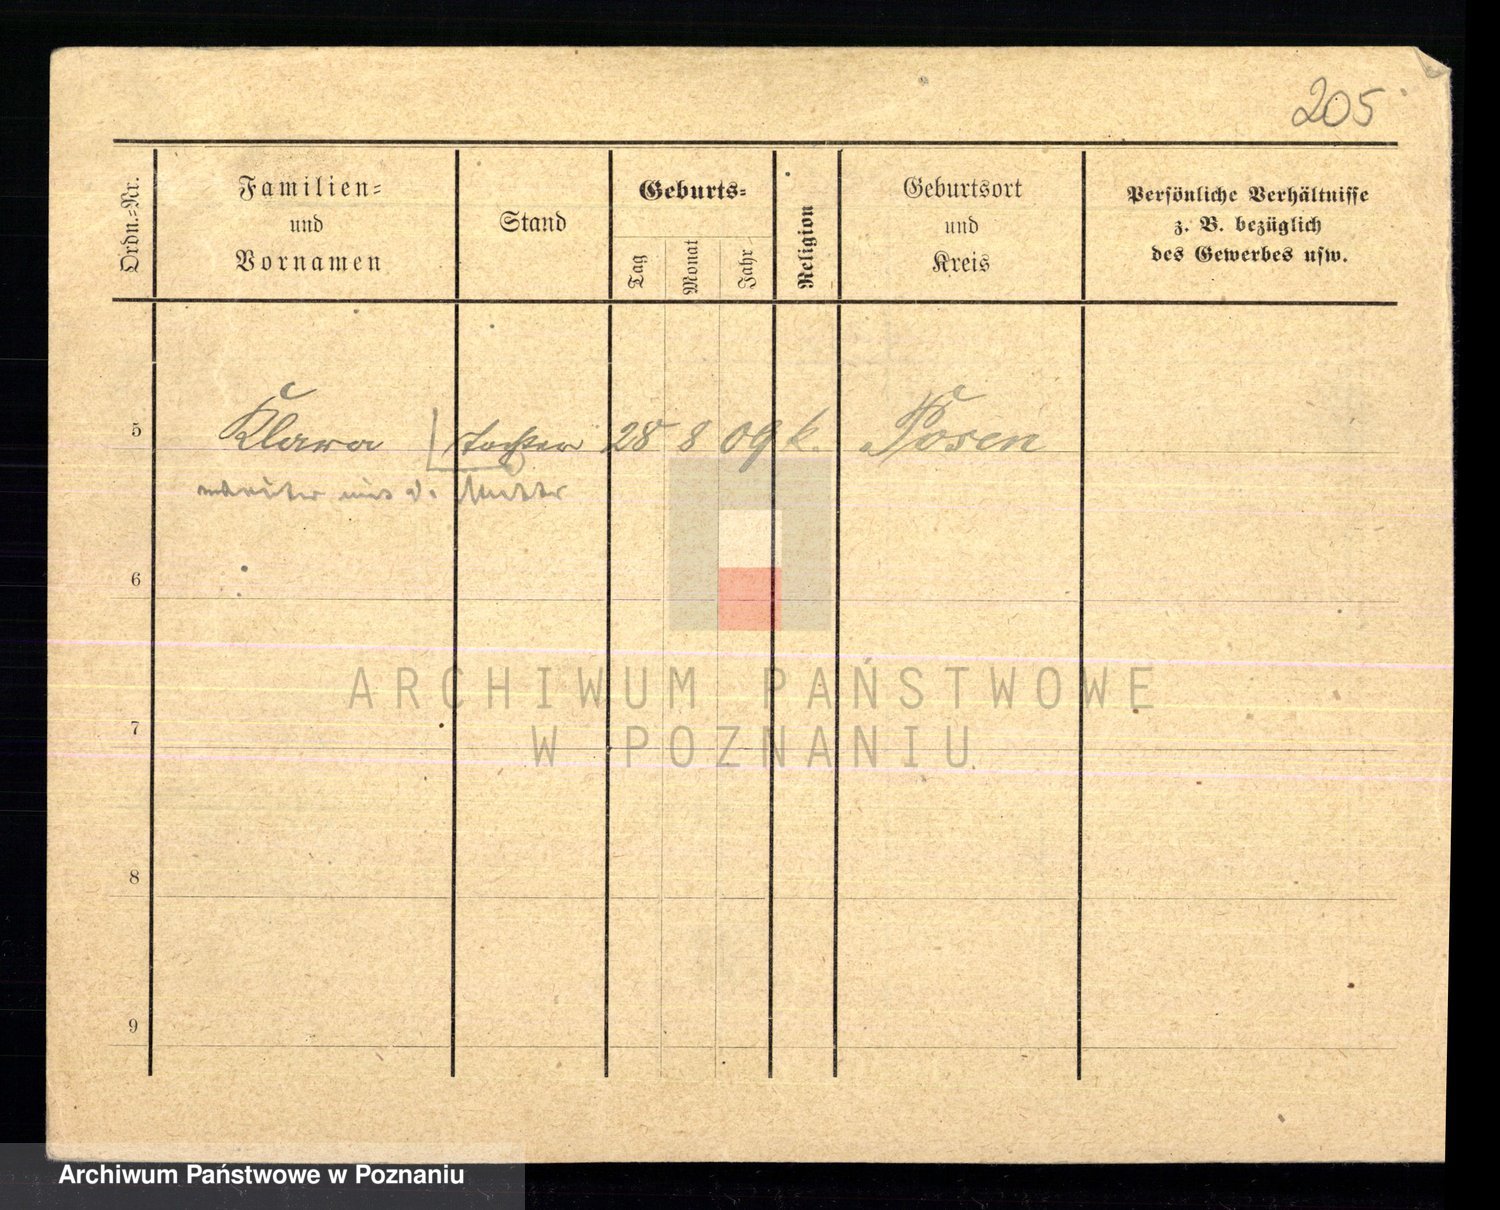 205
Ordn.=Nr.
Familien=
und
Vornamen
Stand
Geburts=
Tag
Monat
Jahr
Religion
Geburtsort
und
Kreis
Persönliche Verhältnisse
z. B. bezüglich
des Gewerbes usw.
5 Klara Tochter 28 8 09 k. Posen
mit d. Mutter
6
7
8
9
ARCHIWUM PAŃSTWOWE
W POZNANIU
Archiwum Państwowe w Poznaniu